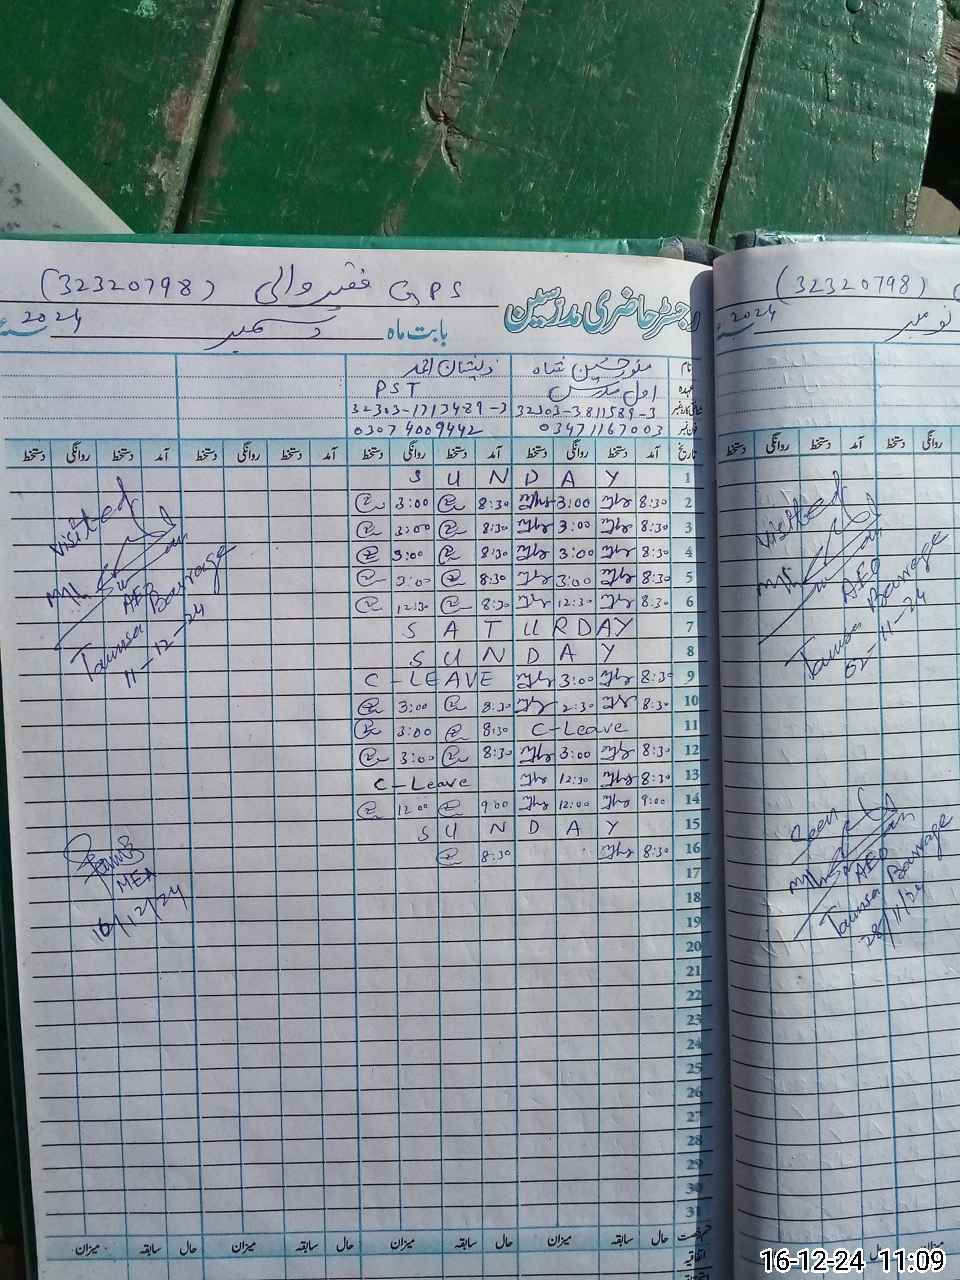 GPS فقیر والی (32320798)
رجسٹر حاضری مدرسین
بابت ماہ دسمبر 2024
نام منور حسین شاہ ذیشان احمد
عہدہ اول مدرس PST
32303-3811589-3 32303-1713489-3
فون نمبر 03471167003 03074009442
تاریخ آمد دستخط روانگی دستخط آمد دستخط روانگی دستخط آمد دستخط روانگی دستخط آمد دستخط روانگی دستخط
1 SUNDAY
2 8:30 3:00 8:30 3:00
3 8:30 3:00 8:30 3:00
4 8:30 3:00 8:30 3:00
5 8:30 3:00 8:30 3:00
6 8:30 12:30 8:30 12:30
7 SATURDAY
8 SUNDAY
9 8:30 3:00 C-LEAVE
10 8:30 2:30 8:30 3:00
11 C-Leave 8:30 3:00
12 8:30 3:00 8:30 3:00
13 8:30 12:30 C-Leave
14 9:00 12:00 9:00 12:00
15 SUNDAY
16 8:30 8:30
17
18
19
20
21
22
23
24
25
26
27
28
29
30
31
حال سابقہ میزان حال سابقہ میزان حال سابقہ میزان حال سابقہ میزان
اتفاقیہ
Visited
AEO
Taunsa Barrage
11-12-24
MEA
16/12/24
(32320798) G
نومبر 2024
دستخط روانگی دستخط آمد دستخط روانگی
Visited
AEO
Taunsa Barrage
02-11-24
Seen
AEO
Taunsa Barrage
28/11/24
حال سابقہ میزان
16-12-24 11:09